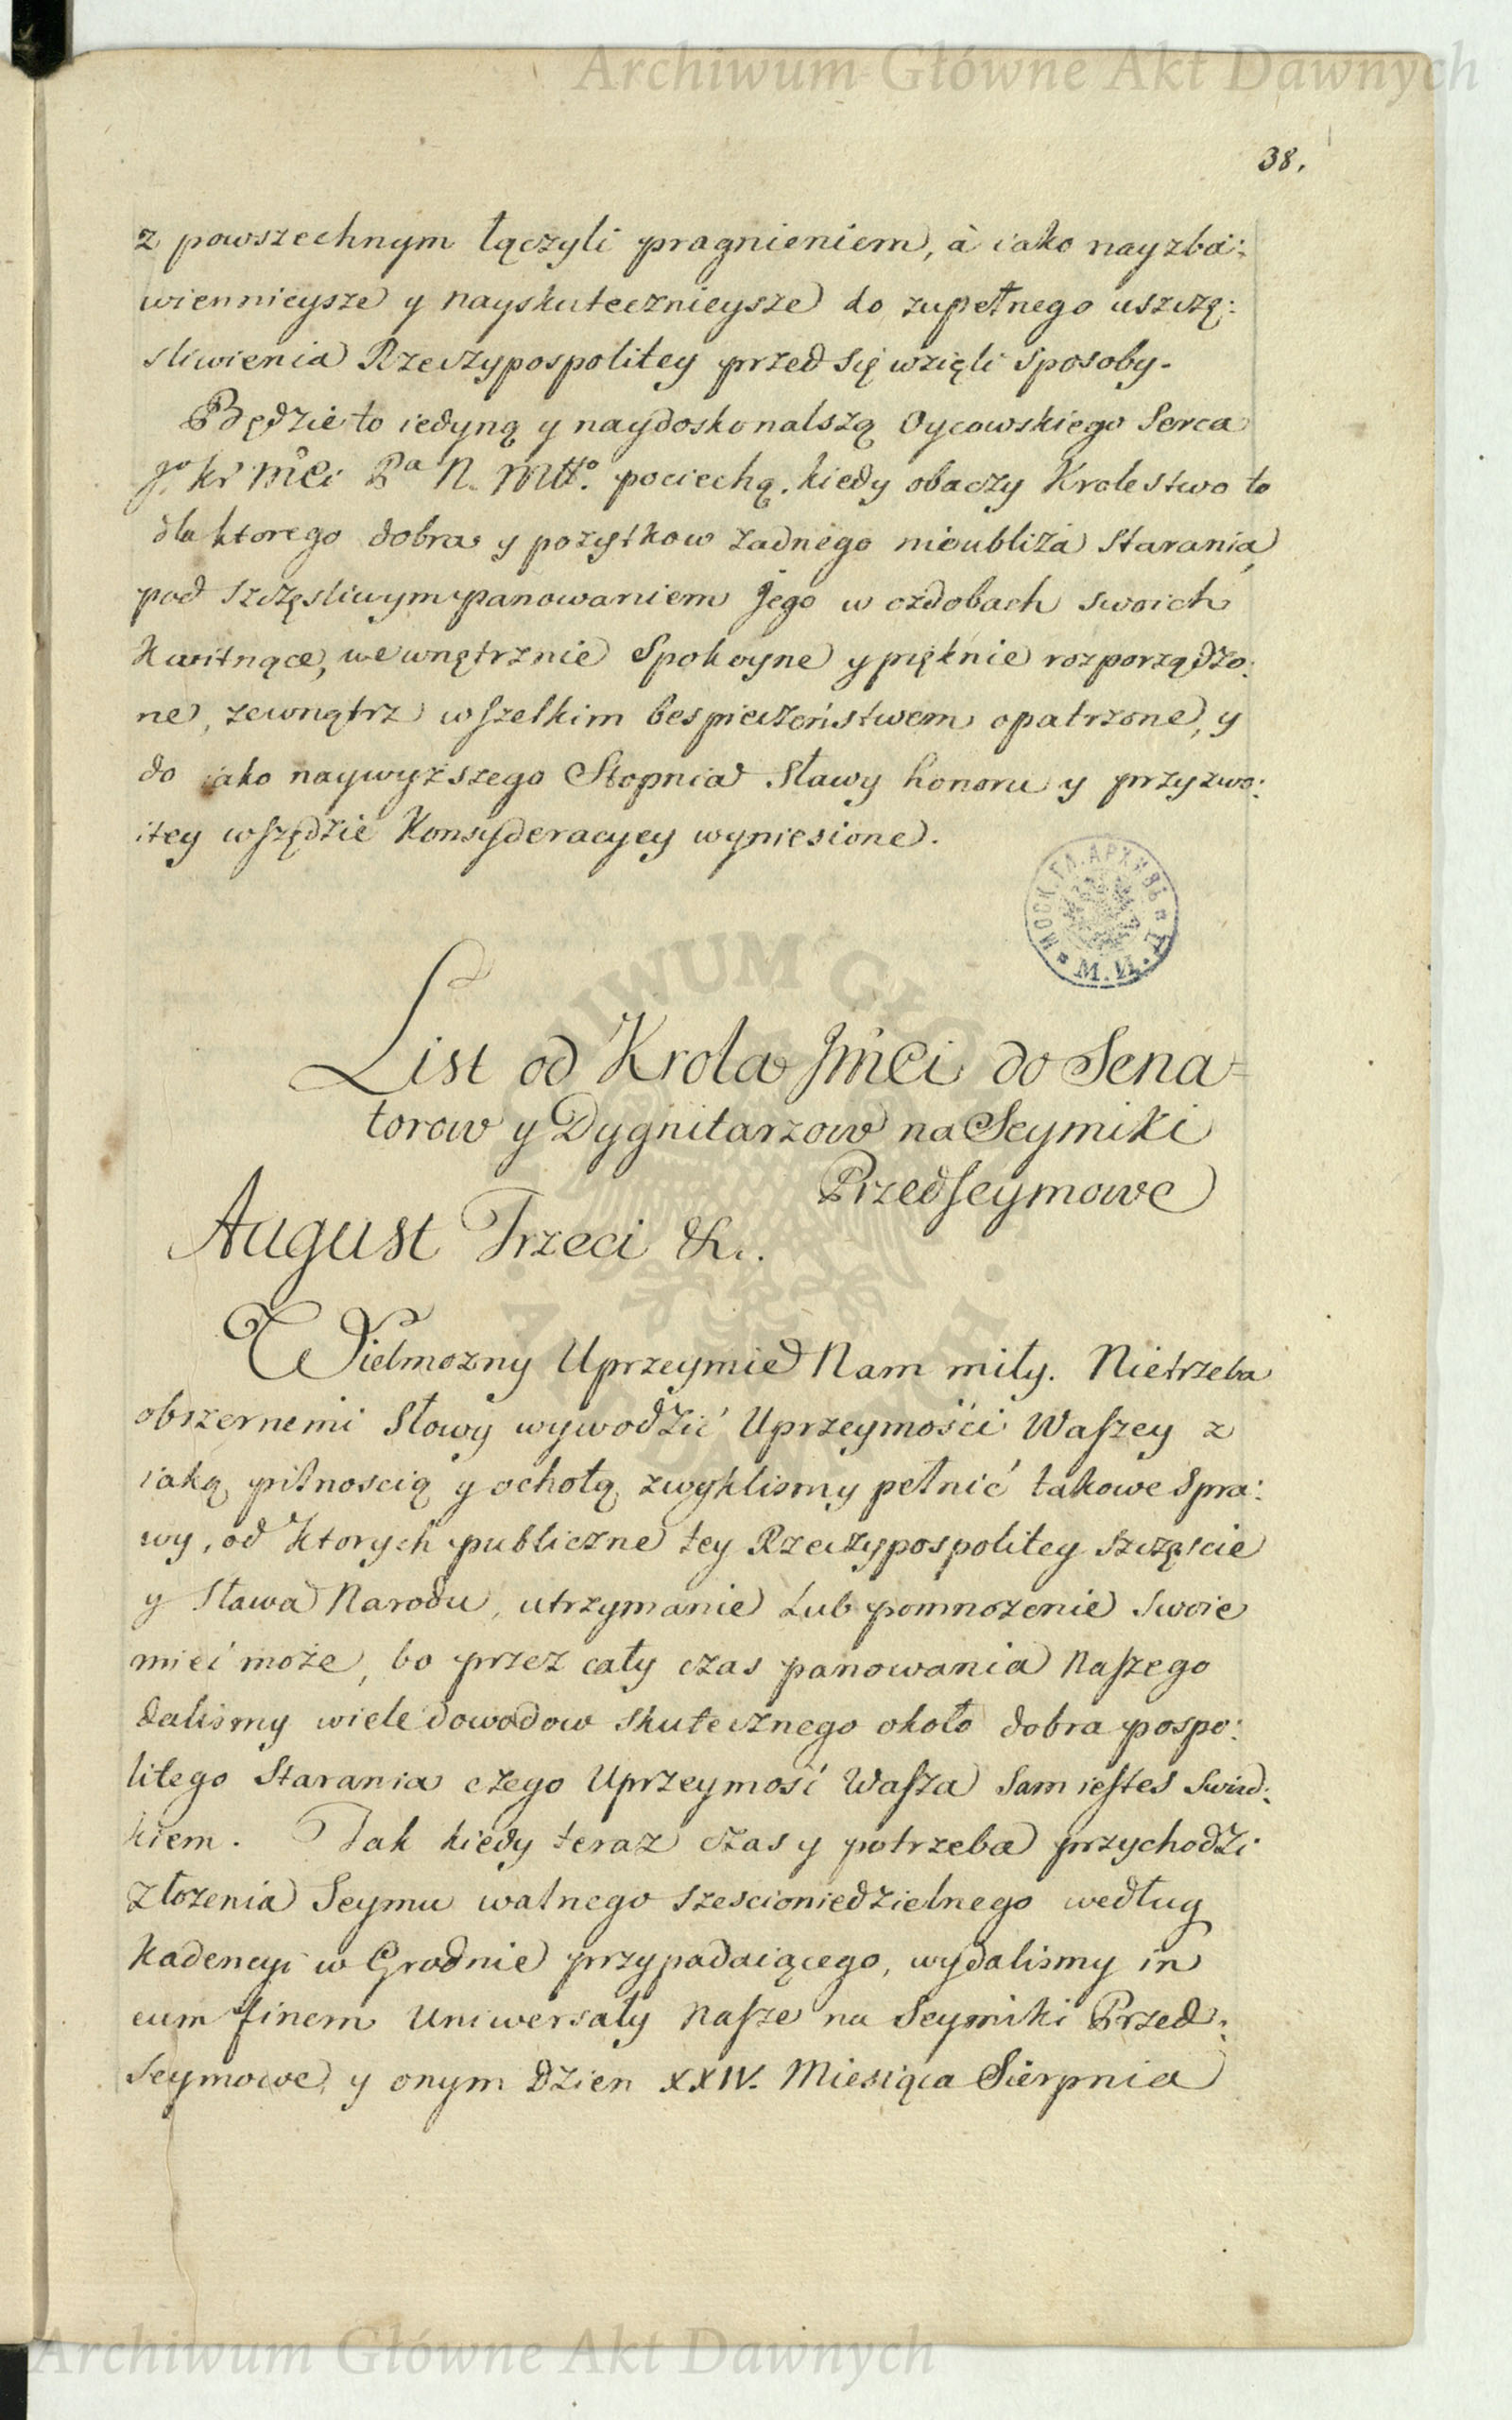 Archiwum Główne Akt Dawnych
38.
z powszechnym łączyli pragnieniem, à iako nayzba:
wiennieysze y nayskutecznieysze do zupełnego uszczę:
sliwienia Rzeczypospolitey przed się wzięli sposoby.
Będzie to iedyną y naydoskonalszą Oycowskiego Serca
Jo. Kr Mci Pa N. Mtto. pociechą. kiedy obaczy Krolestwo to
dla ktorego dobra y pozytkow żadnego nieubliża starania,
pod szczęsliwym panowaniem Jego w ozdobach swoich
kwitnące, wewnętrznie Spokoyne y pięknie rozporządzo:
ne, zewnątrz wszelkim bespieczeństwem opatrzone, y
do iako naywyższego Stopnia Sławy honoru y przyzwo:
itey wszędzie Konsyderacyey wyniesione.
МОСК. ГЛ. АРХИВЪ М.И.Д.
List od Krola Jmci do Sena=
torow y Dygnitarzow na Seymiki
Przedseymowe
August Trzeci &c.
Wielmozny Uprzeymie Nam miły. Nietrzeba
obszernemi Słowy wywodzić Uprzeymości Waszey z
iaką pilnoscią y ochotą zwyklismy pełnić takowe Spra:
wy, od ktorych publiczne tey Rzeczypospolitey szczęscie
y Sława Narodu, utrzymanie Lub pomnozenie swoie
mieć może, bo przez cały czas panowania Naszego
dalismy wiele dowodow skutecznego około dobra pospo:
litego Starania czego Uprzeymość Wasza Sam iesteś Swiad:
kiem. Tak kiedy teraz czas y potrzeba przychodzi
złożenia Seymu walnego szescioniedzielnego według
Kadencyi w Grodnie przypadaiącego, wydalismy in
eum finem Uniwersały Nasze na Seymiki Przed:
Seymowe, y onym Dzien XXIV. Miesiąca Sierpnia
Archiwum Główne Akt Dawnych